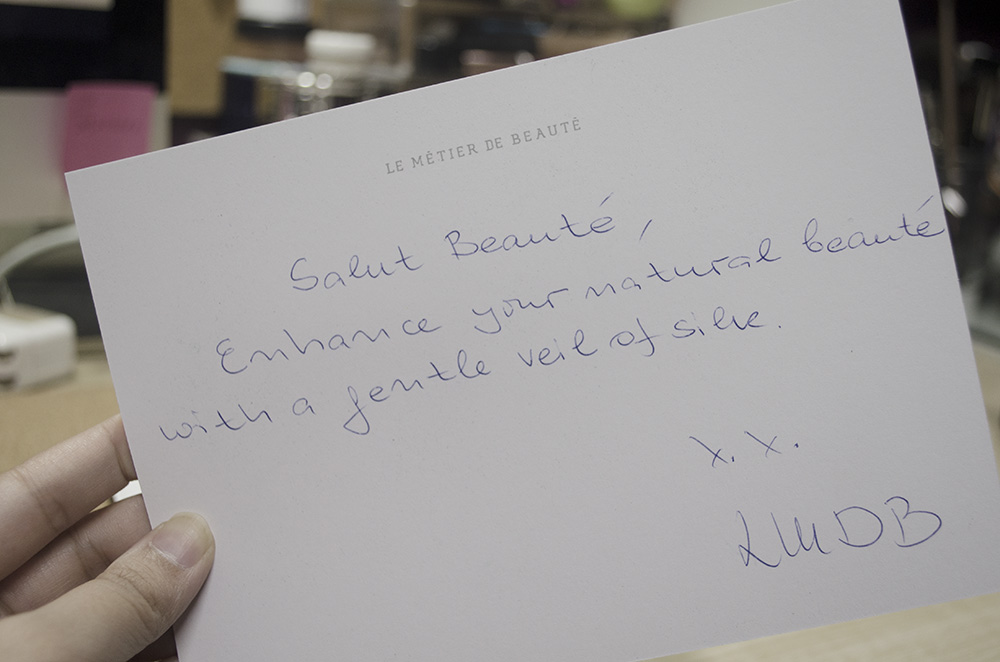 LE MÉTIER DE BEAUTÉ
Salut Beauté,
Enhance your natural beauté
with a gentle veil of silk.
x. x.
LMDB